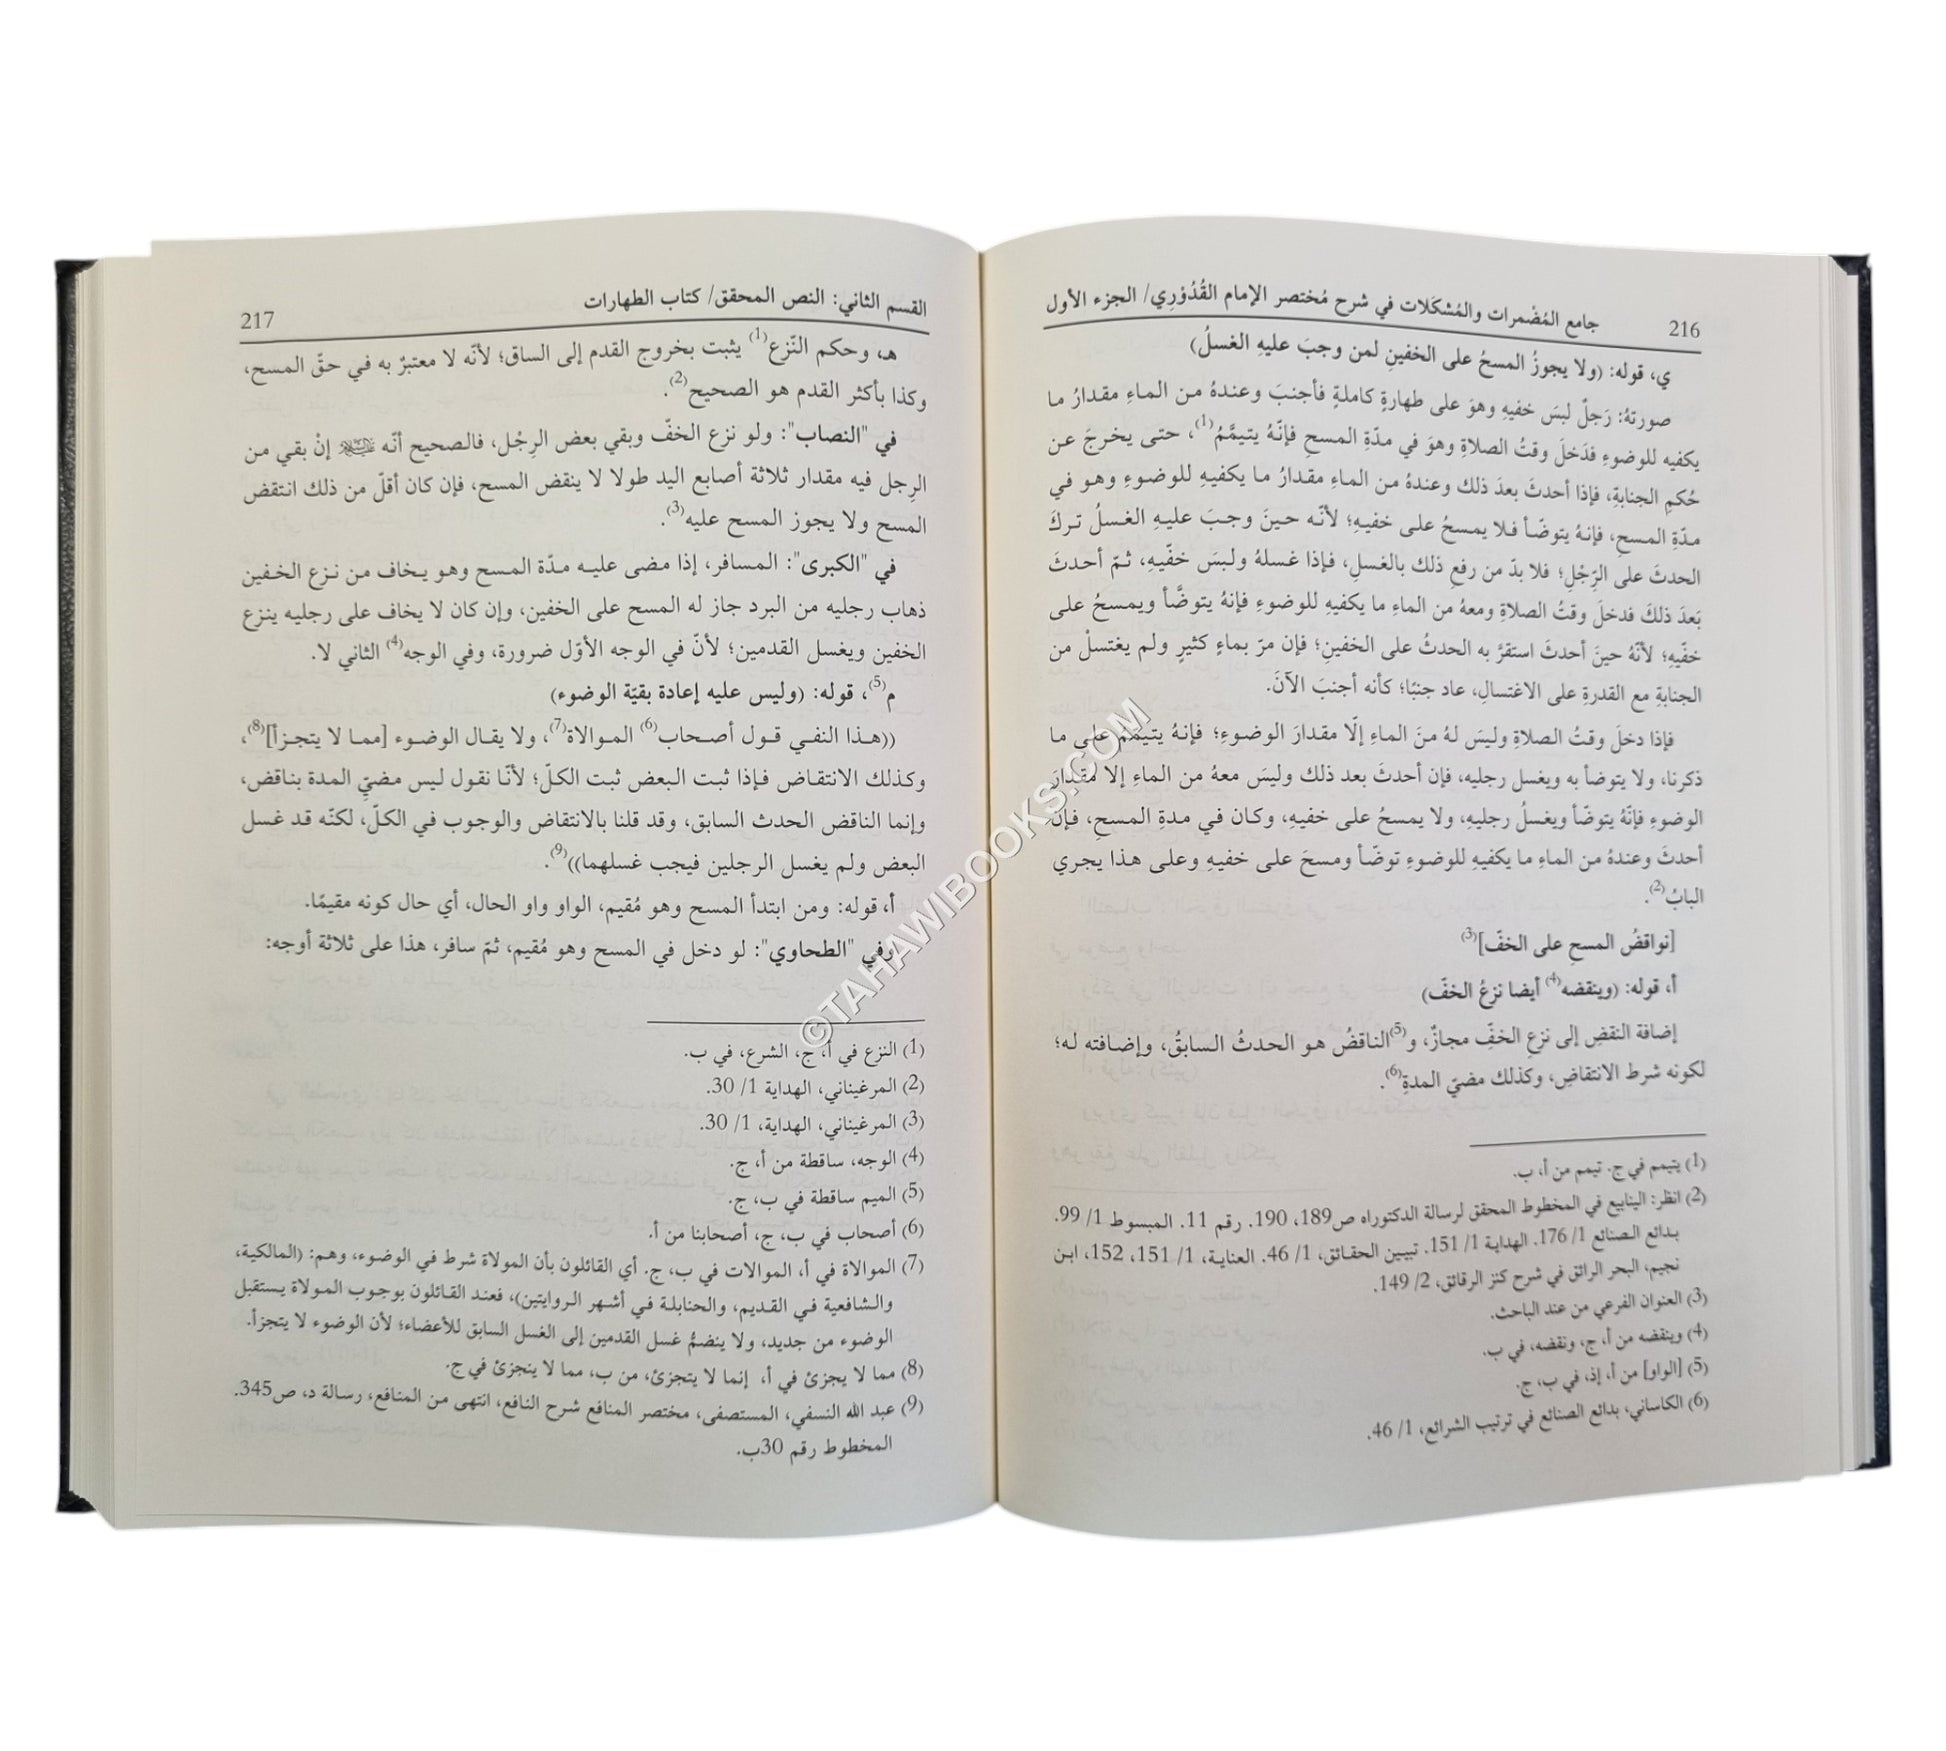 216 جامع المُضْمرات والمُشكَلات في شرح مُختصر الإمام القُدُوْرِي/ الجزء الأول
ي، قوله: (ولا يجوزُ المسحُ على الخفينِ لمن وجبَ عليهِ الغسلُ)
صورتهُ: رَجلٌ لبسَ خفيهِ وهوَ على طهارةٍ كاملةٍ فأجنبَ وعندهُ من الماءِ مقدارُ ما
يكفيه للوضوءِ فدَخلَ وقتُ الصلاةِ وهوَ في مدّةِ المسحِ فإنّهُ يتيمَّمُ(1)، حتى يخرجَ عن
حُكمِ الجنابةِ، فإذا أحدثَ بعدَ ذلك وعندهُ من الماءِ مقدارُ ما يكفيهِ للوضوءِ وهو في
مدّةِ المسحِ، فإنهُ يتوضّأ فلا يمسحُ على خفيهِ؛ لأنّه حينَ وجبَ عليهِ الغسلُ تركَ
الحدثَ على الرِّجْلِ؛ فلا بدّ من رفعِ ذلك بالغسلِ، فإذا غسلهُ ولبسَ خفّيهِ، ثمّ أحدثَ
بَعدَ ذلكَ فدخلَ وقتُ الصلاةِ ومعهُ من الماءِ ما يكفيهِ للوضوءِ فإنهُ يتوضَّأ ويمسحُ على
خفّيهِ؛ لأنّهُ حينَ أحدثَ استقرَّ به الحدثُ على الخفينِ؛ فإن مرّ بماءٍ كثيرٍ ولم يغتسلْ من
الجنابةِ مع القدرةِ على الاغتسالِ، عاد جنبًا؛ كأنه أجنبَ الآنَ.
فإذا دخلَ وقتُ الصلاةِ وليسَ لهُ منَ الماءِ إلّا مقدارَ الوضوءِ؛ فإنهُ يتيمّمُ على ما
ذكرنا، ولا يتوضأ به ويغسل رجليه، فإن أحدثَ بعد ذلك وليسَ معهُ من الماءِ إلا مقدارَ
الوضوءِ فإنَّهُ يتوضّأ ويغسلُ رجليهِ، ولا يمسحُ على خفيهِ، وكان في مدةِ المسحِ، فإن
أحدثَ وعندهُ من الماءِ ما يكفيهِ للوضوءِ توضّأ ومسحَ على خفيهِ وعلى هذا يجري
البابُ(2).
[نواقضُ المسحِ على الخفّ](3)
أ، قوله: (وينقضه(4) أيضا نزعُ الخفّ)
إضافة النقضِ إلى نزعِ الخفِّ مجازٌ، و(5)الناقضُ هو الحدثُ السابقُ، وإضافته له؛
لكونه شرط الانتقاضِ، وكذلك مضيّ المدةِ(6).
(1) يتيمم في ج. تيمم من أ، ب.
(2) انظر: الينابيع في المخطوط المحقق لرسالة الدكتوراه ص189، 190. رقم 11. المبسوط 1/ 99.
بدائع الصنائع 1/ 176. الهداية 1/ 151. تبيين الحقائق، 1/ 46. العناية، 1/ 151، 152، ابن
نجيم، البحر الرائق في شرح كنز الرقائق، 2/ 149.
(3) العنوان الفرعي من عند الباحث.
(4) وينقضه من أ، ج، ونقضه، في ب.
(5) [الواو] من أ، إذ، في ب، ج.
(6) الكاساني، بدائع الصنائع في ترتيب الشرائع، 1/ 46.
القسم الثاني: النص المحقق/ كتاب الطهارات 217
هـ، وحكم النّزع(1) يثبت بخروج القدم إلى الساق؛ لأنّه لا معتبرٌ به في حقّ المسح،
وكذا بأكثر القدم هو الصحيح(2).
في "النصاب": ولو نزع الخفّ وبقي بعض الرِجْل، فالصحيح أنّه إنْ بقي من
الرِجل فيه مقدار ثلاثة أصابع اليد طولا لا ينقض المسح، فإن كان أقلّ من ذلك انتقض
المسح ولا يجوز المسح عليه(3).
في "الكبرى": المسافر، إذا مضى عليه مدّة المسح وهو يخاف من نزع الخفين
ذهاب رجليه من البرد جاز له المسح على الخفين، وإن كان لا يخاف على رجليه ينزع
الخفين ويغسل القدمين؛ لأنّ في الوجه الأوّل ضرورة، وفي الوجه(4) الثاني لا.
م(5)، قوله: (وليس عليه إعادة بقيّة الوضوء)
((هذا النفي قول أصحاب(6) الموالاة(7)، ولا يقال الوضوء [مما لا يتجزأ](8)،
وكذلك الانتقاض فإذا ثبت البعض ثبت الكلّ؛ لأنّا نقول ليس مضيّ المدة بناقض،
وإنما الناقض الحدث السابق، وقد قلنا بالانتقاض والوجوب في الكلّ، لكنّه قد غسل
البعض ولم يغسل الرجلين فيجب غسلهما))(9).
أ، قوله: ومن ابتدأ المسح وهو مُقيم، الواو واو الحال، أي حال كونه مقيمًا.
وفي "الطحاوي": لو دخل في المسح وهو مُقيم، ثمّ سافر، هذا على ثلاثة أوجه:
(1) النزع في أ، ج، الشرع، في ب.
(2) المرغيناني، الهداية 1/ 30.
(3) المرغيناني، الهداية، 1/ 30.
(4) الوجه، ساقطة من أ، ج.
(5) الميم ساقطة في ب، ج.
(6) أصحاب في ب، ج، أصحابنا من أ.
(7) الموالاة في أ، الموالات في ب، ج. أي القائلون بأن المولاة شرط في الوضوء، وهم: (المالكية،
والشافعية في القديم، والحنابلة في أشهر الروايتين)، فعند القائلون بوجوب المولاة يستقبل
الوضوء من جديد، ولا ينضمُّ غسل القدمين إلى الغسل السابق للأعضاء؛ لأن الوضوء لا يتجزأ.
(8) مما لا يجزئ في أ، إنما لا يتجزئ، من ب، مما لا ينجزئ في ج.
(9) عبد الله النسفي، المستصفى، مختصر المنافع شرح النافع، انتهى من المنافع، رسالة د، ص345.
المخطوط رقم 30ب.
©TAHAWIBOOKS.COM